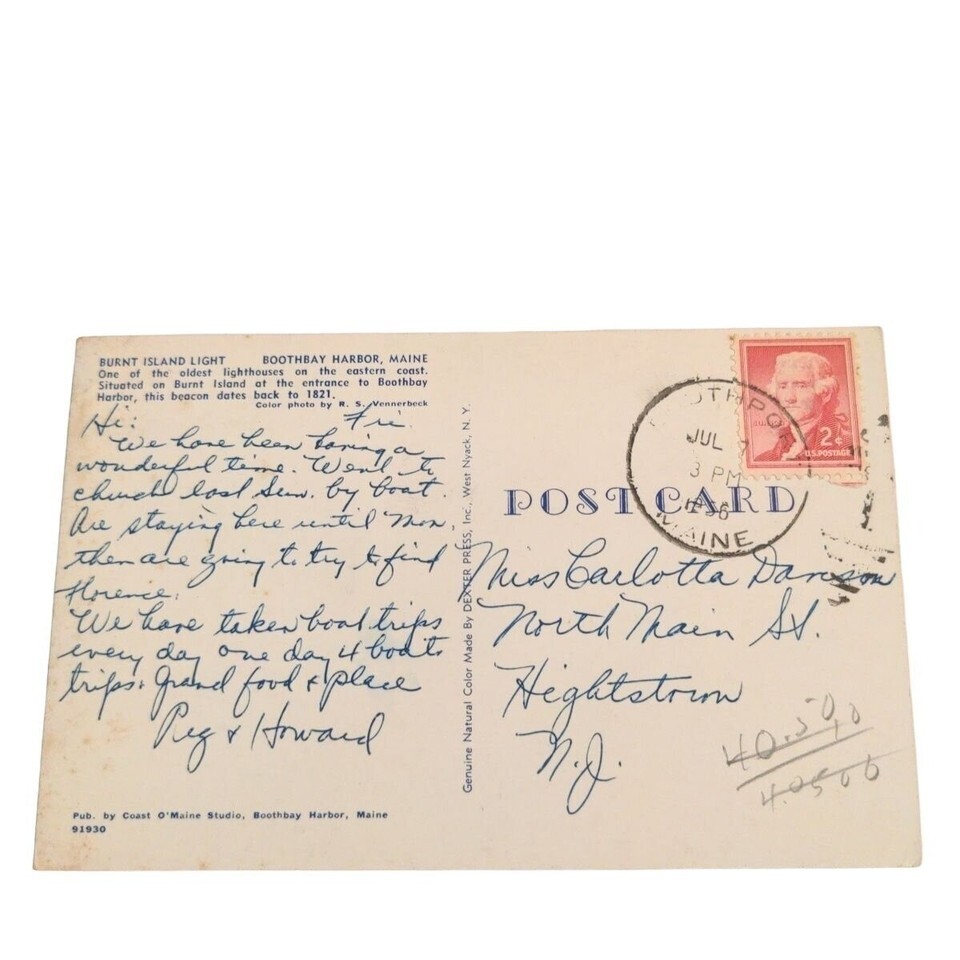 BURNT ISLAND LIGHT BOOTHBAY HARBOR, MAINE
One of the oldest lighthouses on the eastern coast.
Situated on Burnt Island at the entrance to Boothbay
Harbor, this beacon dates back to 1821.
Color photo by R. S. Vennerbeck
Hi: Fri.
We have been having a
wonderful time. Went to
church last Sun. by boat.
Are staying here until Mon.
then are going to try to find
Florence.
We have taken boat trips
every day one day 4 boats
trips. Grand food & place
Reg & Howard
Pub. by Coast O'Maine Studio, Boothbay Harbor, Maine
91930
Genuine Natural Color Made By DEXTER PRESS, Inc., West Nyack, N. Y.
POST CARD
OTHPO
JUL
3 PM
1956
MAINE
2¢
U.S. POSTAGE
Miss Carlotta Davison
North Main St.
Hightstown
N.J.